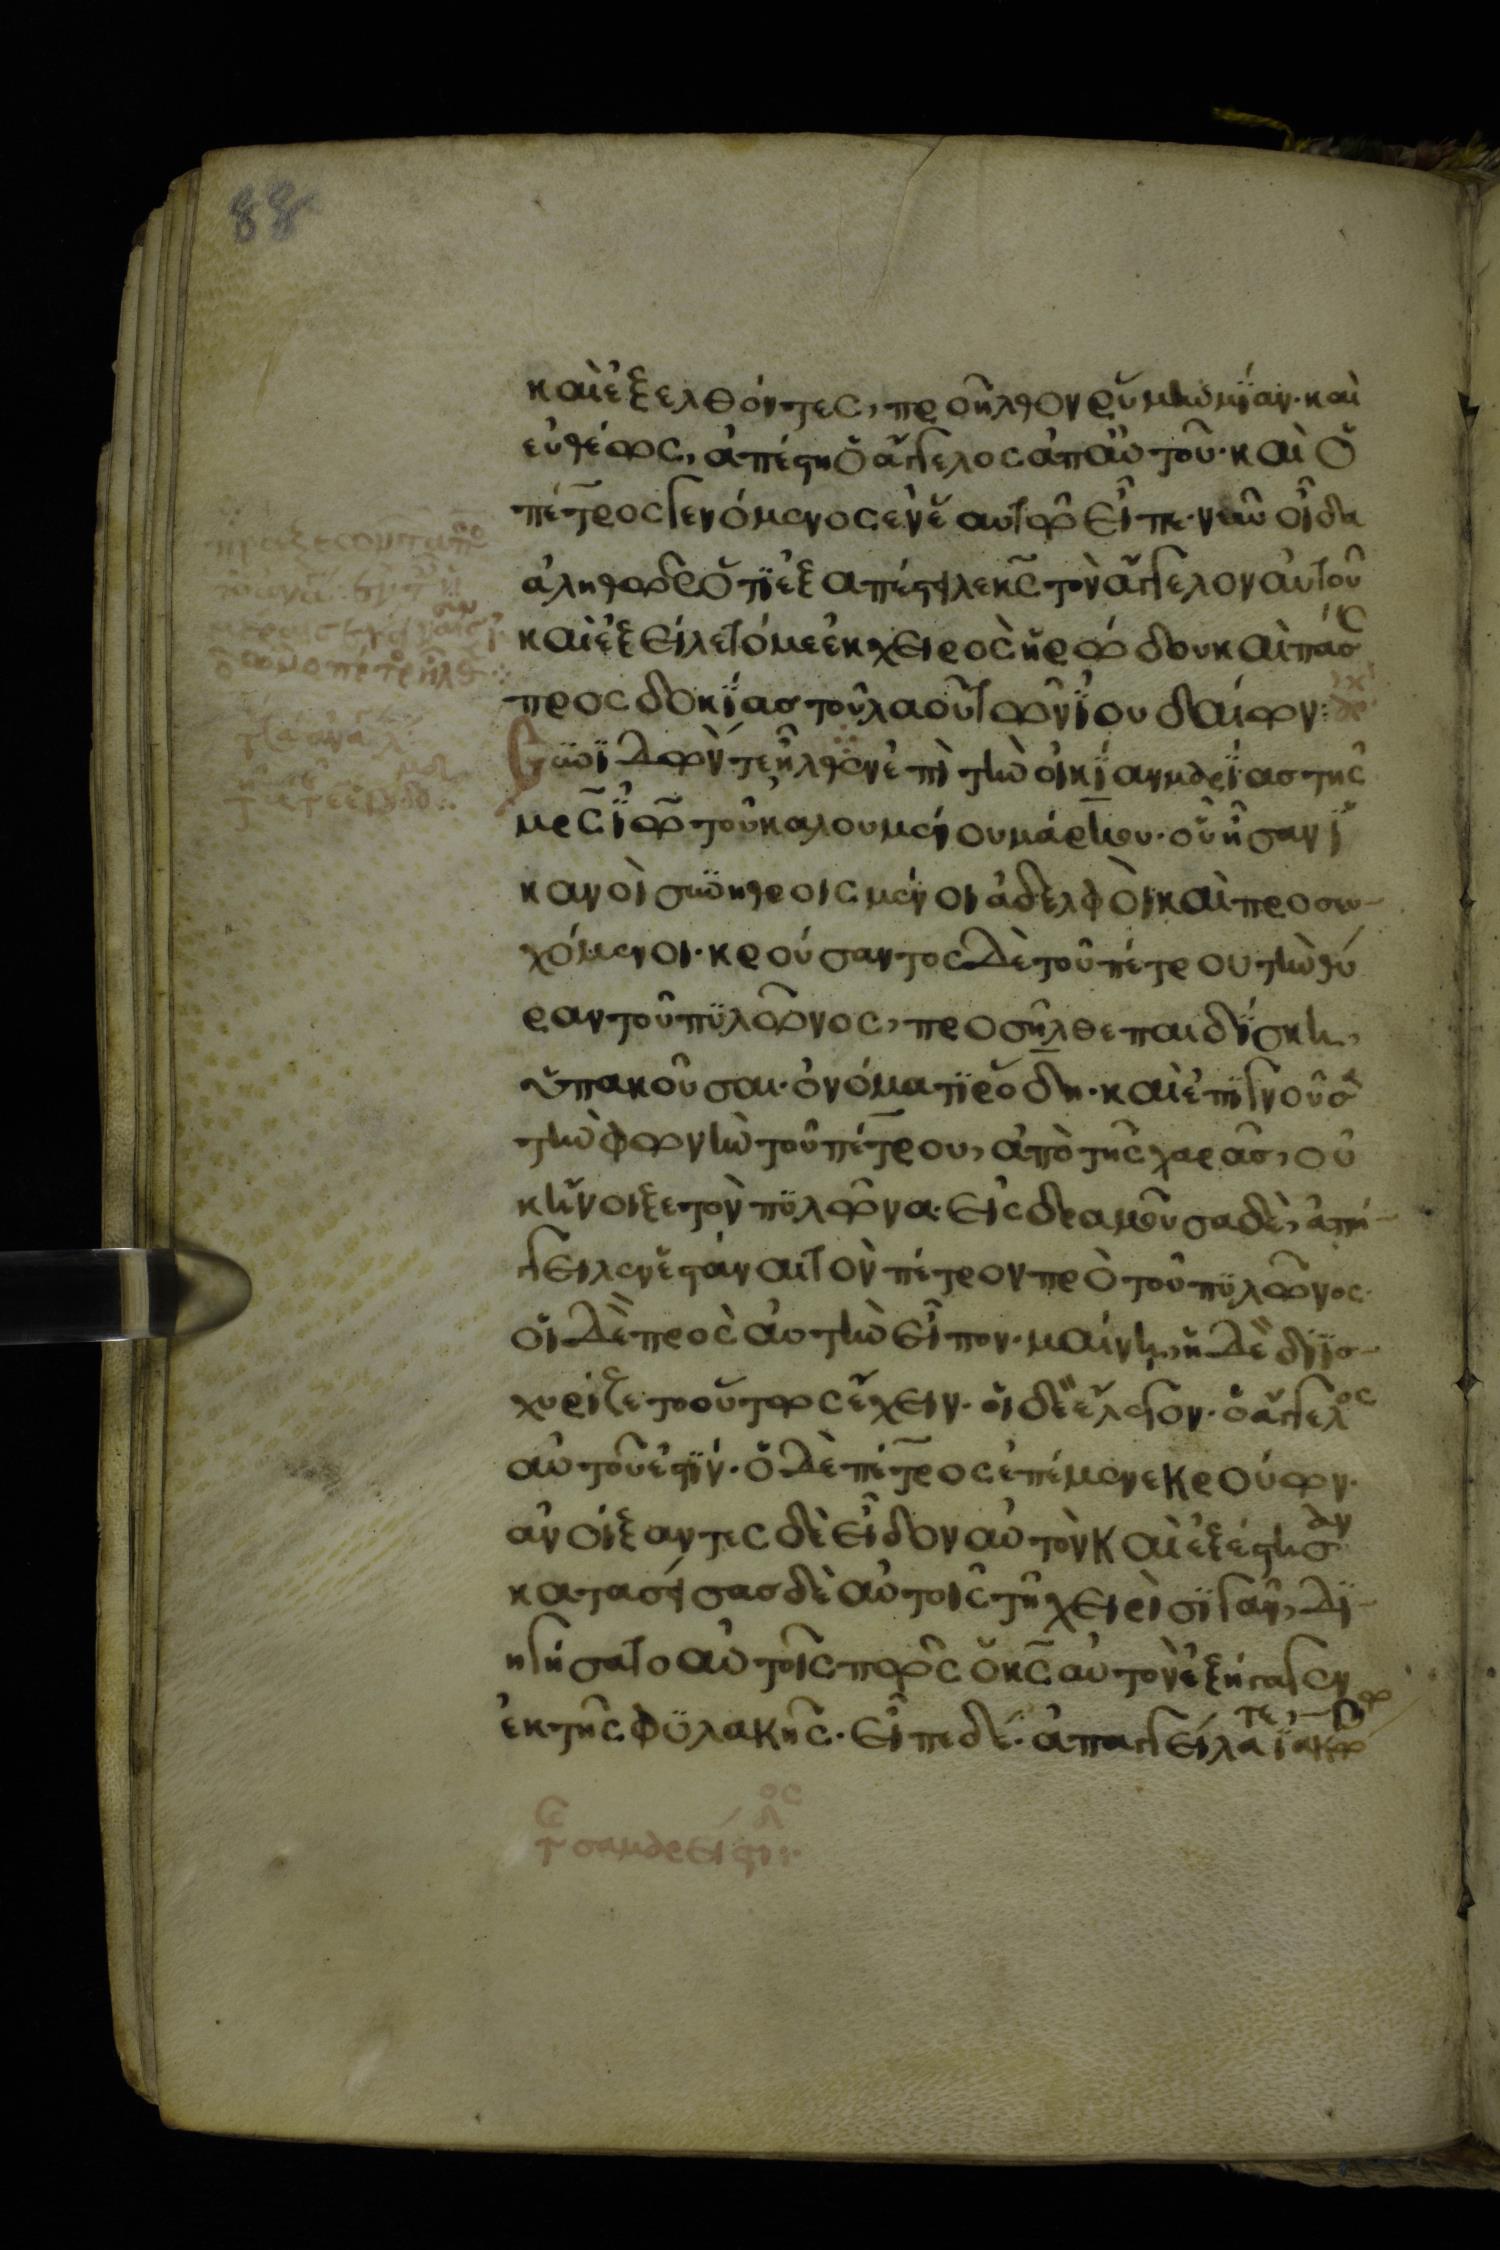 88
καὶ ἐξελθόντες, προῆλθον ῥύμην μίαν· καὶ
εὐθέως, ἀπέστη ὁ ἄγγελος ἀπ αὐτοῦ· καὶ ὁ
πέτρος γενόμενος ἐν ἑαυτῶ εἶπε· νῦν οἶδα
ἀληθῶς ὅτι ἐξαπέστειλε κς τὸν ἄγγελον αὐτοῦ
καὶ ἐξείλετό με ἐκ χειρὸς ἡρώδου καὶ πάσης
προσδοκίας τοῦ λαοῦ τῶν ἰουδαίων:
συνιδών τε ἦλθεν ἐπὶ τὴν οἰκίαν μαρίας τῆς
μρς ἰω τοῦ καλουμένου μάρκου· οὗ ἦσαν ἱ
κανοὶ συνηθροισμένοι ἀδελφοὶ καὶ προσευ-
χόμενοι· κρούσαντος δὲ τοῦ πέτρου τὴν θύ
ραν τοῦ πυλῶνος, προσῆλθε παιδίσκη,
ὑπακοῦσαι· ὀνόματι ῥόδη· καὶ ἐπιγνοῦσα
τὴν φωνὴν τοῦ πέτρου, ἀπὸ τῆς χαρᾶς, οὐ
κ ἤνοιξε τὸν πυλῶνα· εἰσδραμοῦσα δὲ, ἀπή-
γγειλεν ἑστάναι τὸν πέτρον πρὸ τοῦ πυλῶνος·
οἱ δὲ πρὸς αὐτὴν εἶπον· μαίνη, ἡ δὲ διϊσ-
χυρίζετο οὕτως ἔχειν· οἱ δὲ ἔλεγον· ὁ ἄγγελος
αὐτοῦ ἐστίν· ὁ δὲ πέτρος ἐπέμενε κρούων·
ἀνοίξαντες δὲ εἶδον αὐτὸν καὶ ἐξέστησαν
κατασείσας δὲ αὐτοῖς τῆ χειρὶ σιγᾶν, δι-
ηγήσατο αὐτοῖς πῶς ὁ κς αὐτὸν ἐξήγαγεν
ἐκ τῆς φυλακῆς· εἶπε δέ· ἀπαγγείλατε ἰακώβω